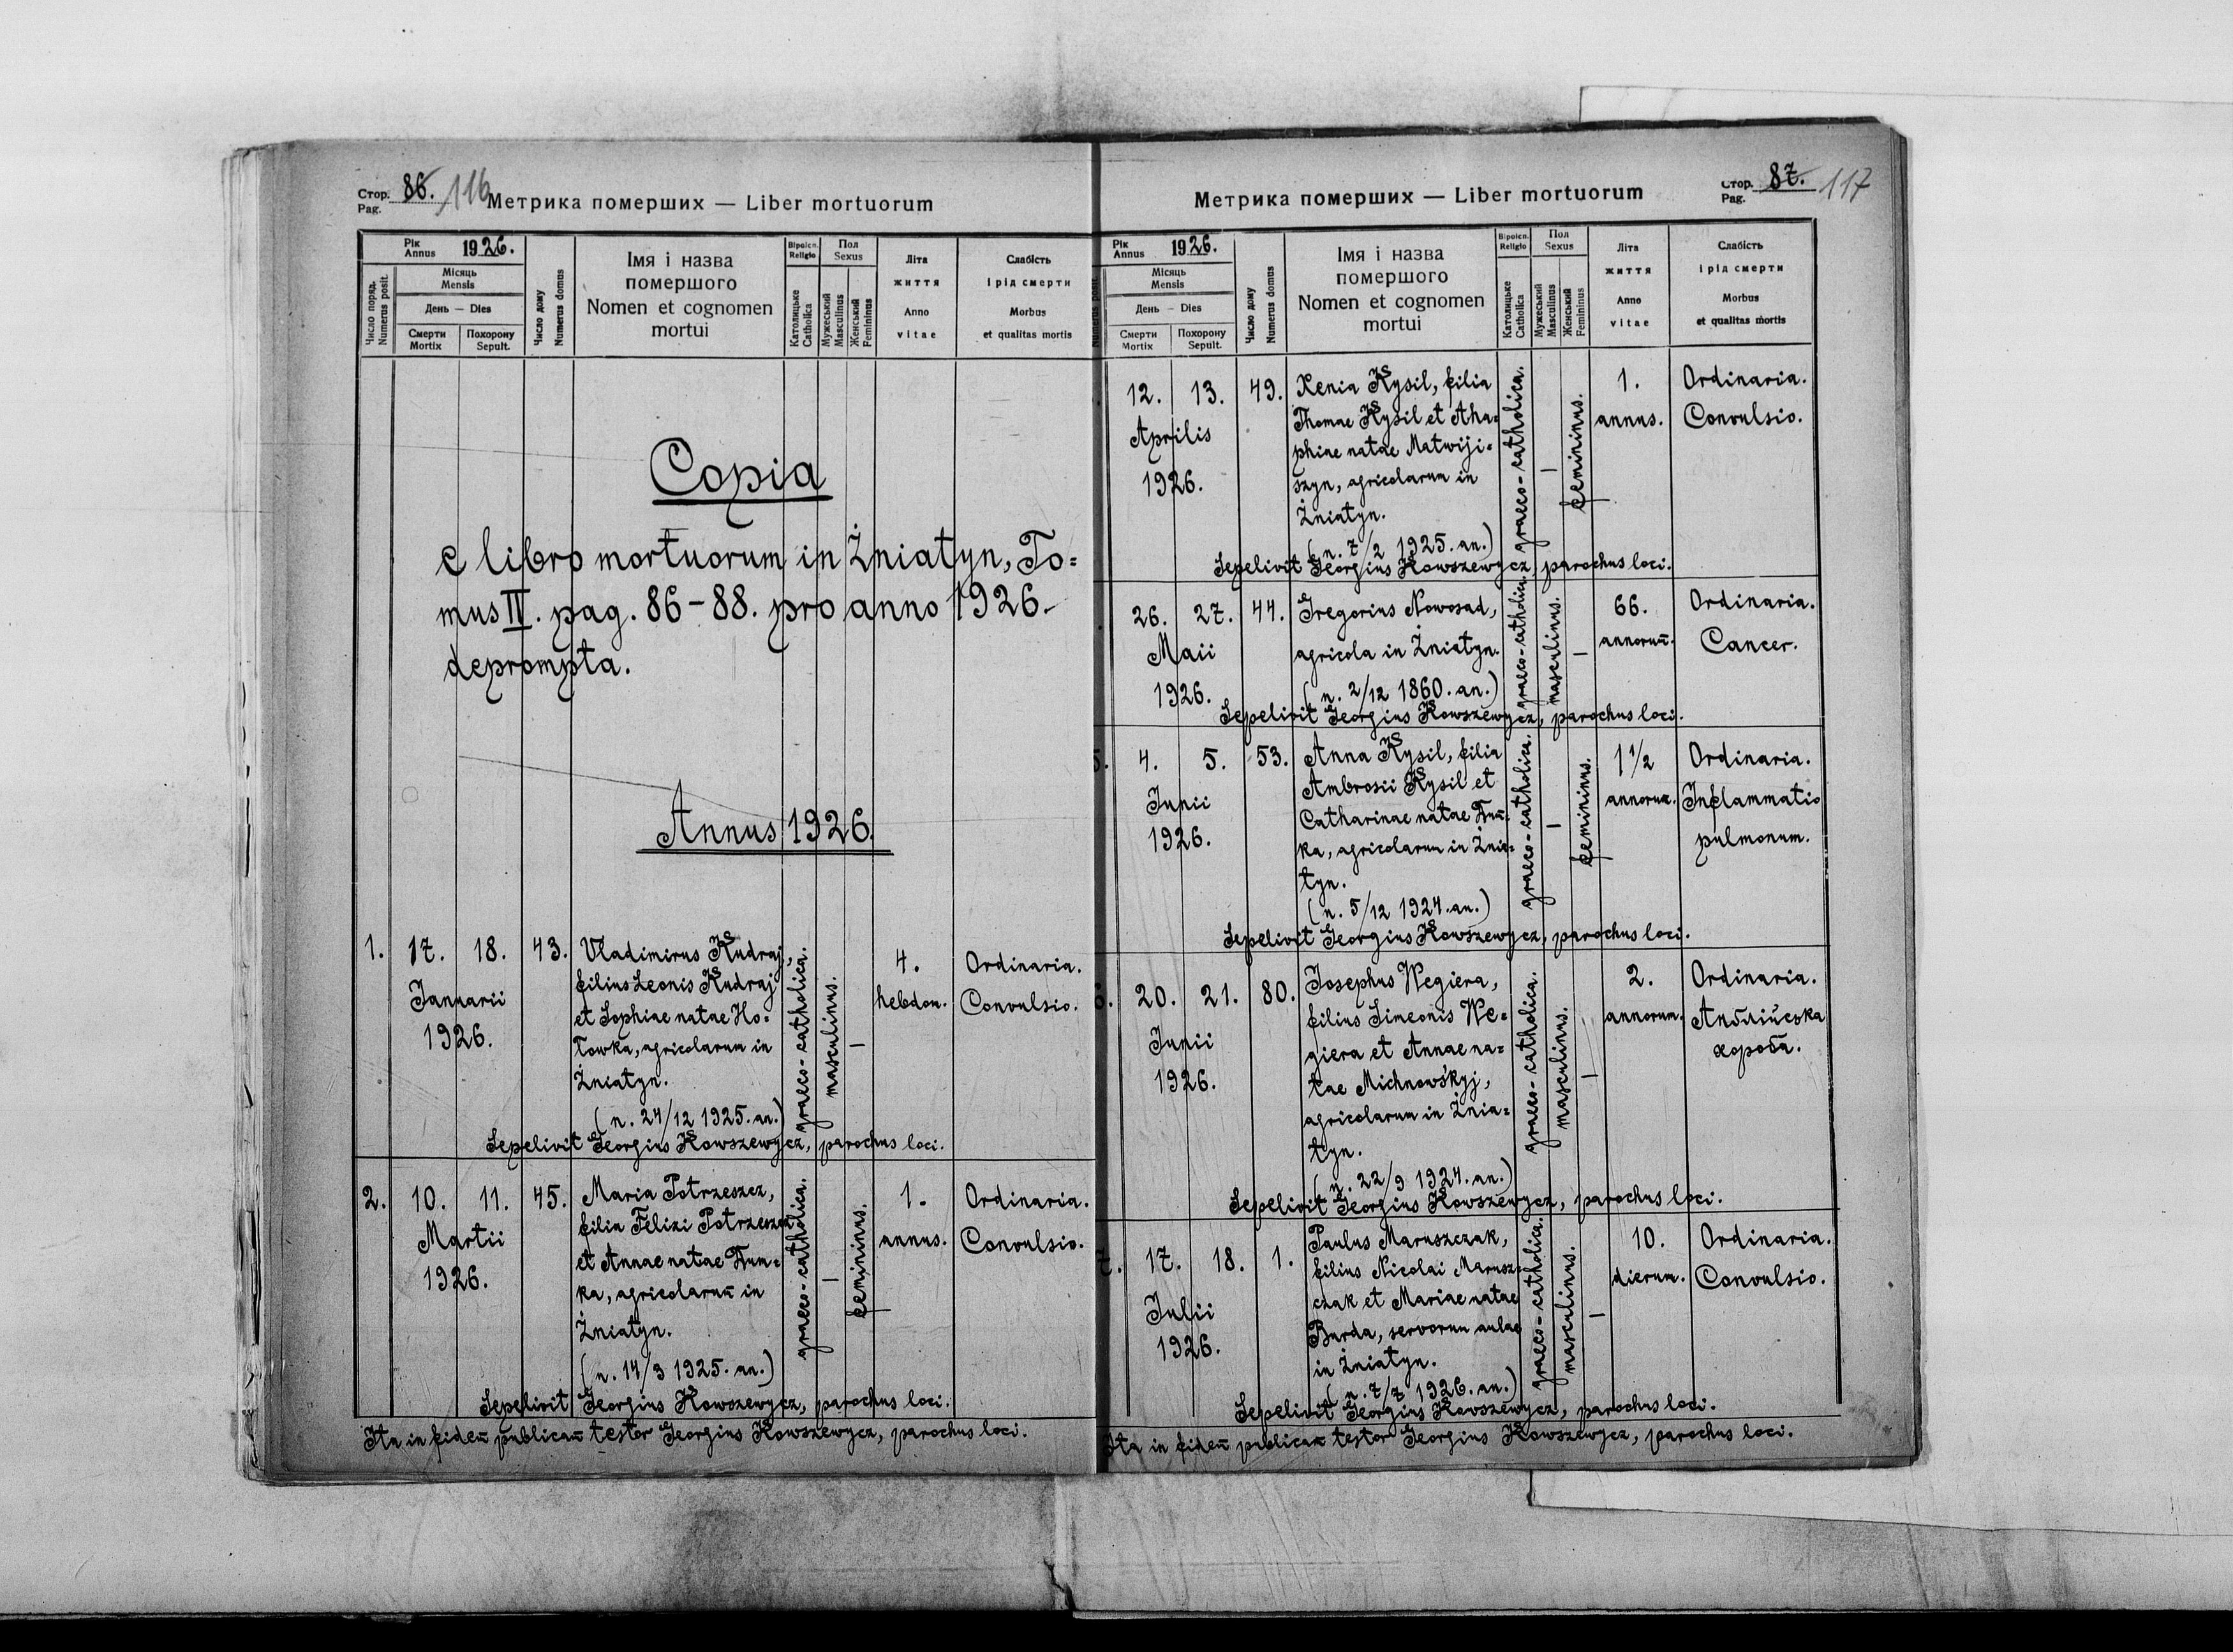 Стор. 86. 116
Pag.
Метрика померших — Liber mortuorum
Рік
Annus 1926.
Місяць
Mensis
День — Dies
Смерти
Mortix
Похорону
Sepult.
Число поряд.
Numerus posit.
Число дому
Numerus domus
Імя і назва
помершого
Nomen et cognomen
mortui
Віроісп.
Religio
Католицьке
Catholica
Пол
Sexus
Мужеський
Masculinus
Женський
Femininus
Літа
життя
Anno
vitae
Слабість
і рід смерти
Morbus
et qualitas mortis
Copia
e libro mortuorum in Żniatyn, To=
mus IV. pag. 86-88. pro anno 1926.
deprompta.
Annus 1926.
1. 17. 18. 43.
Januarii
1926.
Vladimirus Kudraj,
filius Leonis Kudraj
et Sophiae natae Ho=
łowka, agricolarum in
Żniatyn.
(n. 24/12 1925. an.)
graeco-catholica.
masculinus.
—
4.
hebdom.
Ordinaria.
Convulsio.
Sepelivit Georgius Kowszewycz, parochus loci.
2. 10. 11. 45.
Martii
1926.
Maria Potrzeszcz,
filia Felixi Potrzeszcz
et Annae natae Dum=
ka, agricolarum in
Żniatyn.
(n. 14/3 1925. an.)
graeco-catholica.
—
femininus.
1.
annus.
Ordinaria.
Convulsio.
Sepelivit Georgius Kowszewycz, parochus loci.
Ita in fidem publicam testor Georgius Kowszewycz, parochus loci.
Метрика померших — Liber mortuorum
Стор. 87. 117
Pag.
Рік
Annus 1926.
Місяць
Mensis
День — Dies
Смерти
Mortix
Похорону
Sepult.
Число дому
Numerus domus
Імя і назва
помершого
Nomen et cognomen
mortui
Віроісп.
Religio
Католицьке
Catholica
Пол
Sexus
Мужеський
Masculinus
Женський
Femininus
Літа
життя
Anno
vitae
Слабість
і рід смерти
Morbus
et qualitas mortis
12. 13. 49.
Aprilis
1926.
Xenia Kysil, filia
Thomae Kysil et Aha=
phiae natae Matwiji=
szyn, agricolarum in
Żniatyn.
(n. 7/2 1925. an.)
graeco-catholica.
—
femininus.
1.
annus.
Ordinaria.
Convulsio.
Sepelivit Georgius Kowszewycz, parochus loci.
26. 27. 44.
Maii
1926.
Gregorius Nowosad,
agricola in Żniatyn.
(n. 2/12 1860. an.)
graeco-catholica.
masculinus.
—
66.
annorum.
Ordinaria.
Cancer.
Sepelivit Georgius Kowszewycz, parochus loci.
5. 4. 5. 53.
Junii
1926.
Anna Kysil, filia
Ambrosii Kysil et
Catharinae natae Dum=
ka, agricolarum in Żnia=
tyn.
(n. 5/12 1924. an.)
graeco-catholica.
—
femininus.
1 1/2
annorum.
Ordinaria.
Inflammatio
pulmonum.
Sepelivit Georgius Kowszewycz, parochus loci.
6. 20. 21. 80.
Junii
1926.
Josephus Wegiera,
filius Simeonis We=
giera et Annae na=
tae Michnowśkyj,
agricolarum in Żnia=
tyn.
(n. 22/9 1924. an.)
graeco-catholica.
masculinus.
—
2.
annorum.
Ordinaria.
Анґлійська
хороба.
Sepelivit Georgius Kowszewycz, parochus loci.
7. 17. 18. 1.
Julii
1926.
Paulus Maruszczak,
filius Nicolai Marusz=
czak et Mariae natae
Burda, servorum aulae
in Żniatyn.
(n. 7/7 1926. an.)
graeco-catholica.
masculinus.
—
10.
dierum.
Ordinaria.
Convulsio.
Sepelivit Georgius Kowszewycz, parochus loci.
Ita in fidem publicam testor Georgius Kowszewycz, parochus loci.